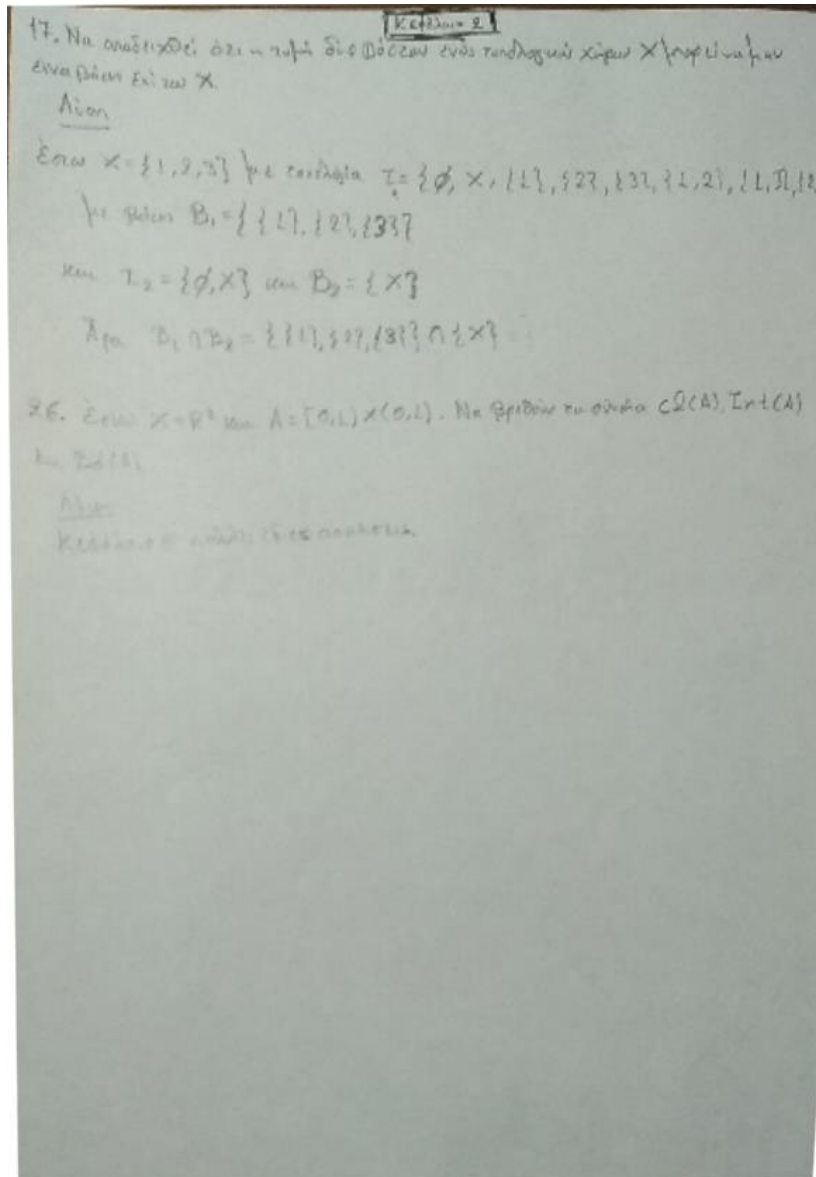 Κεφάλαιο 2
17. Να αποδειχθεί ότι η τομή δύο βάσεων ενός τοπολογικού χώρου Χ μπορεί να μην
είναι βάση επί του Χ.
Λύση
Έστω X = {1,2,3} με τοπολογία τ₁ = {∅, X, {1}, {2}, {3}, {1,2}, {1,3}, {2
με βάση B₁ = { {1}, {2}, {3}}
και τ₂ = {∅, X} και B₂ = {X}
Άρα B₁ ∩ B₂ = {{1}, {2}, {3}} ∩ {X}
26. Έστω X = R² και A = [0,1) × (0,1). Να βρεθούν τα σύνολα cl(A), Int(A)
και Bd(A)
Λύση
Κεφάλαιο ασκήσεις.